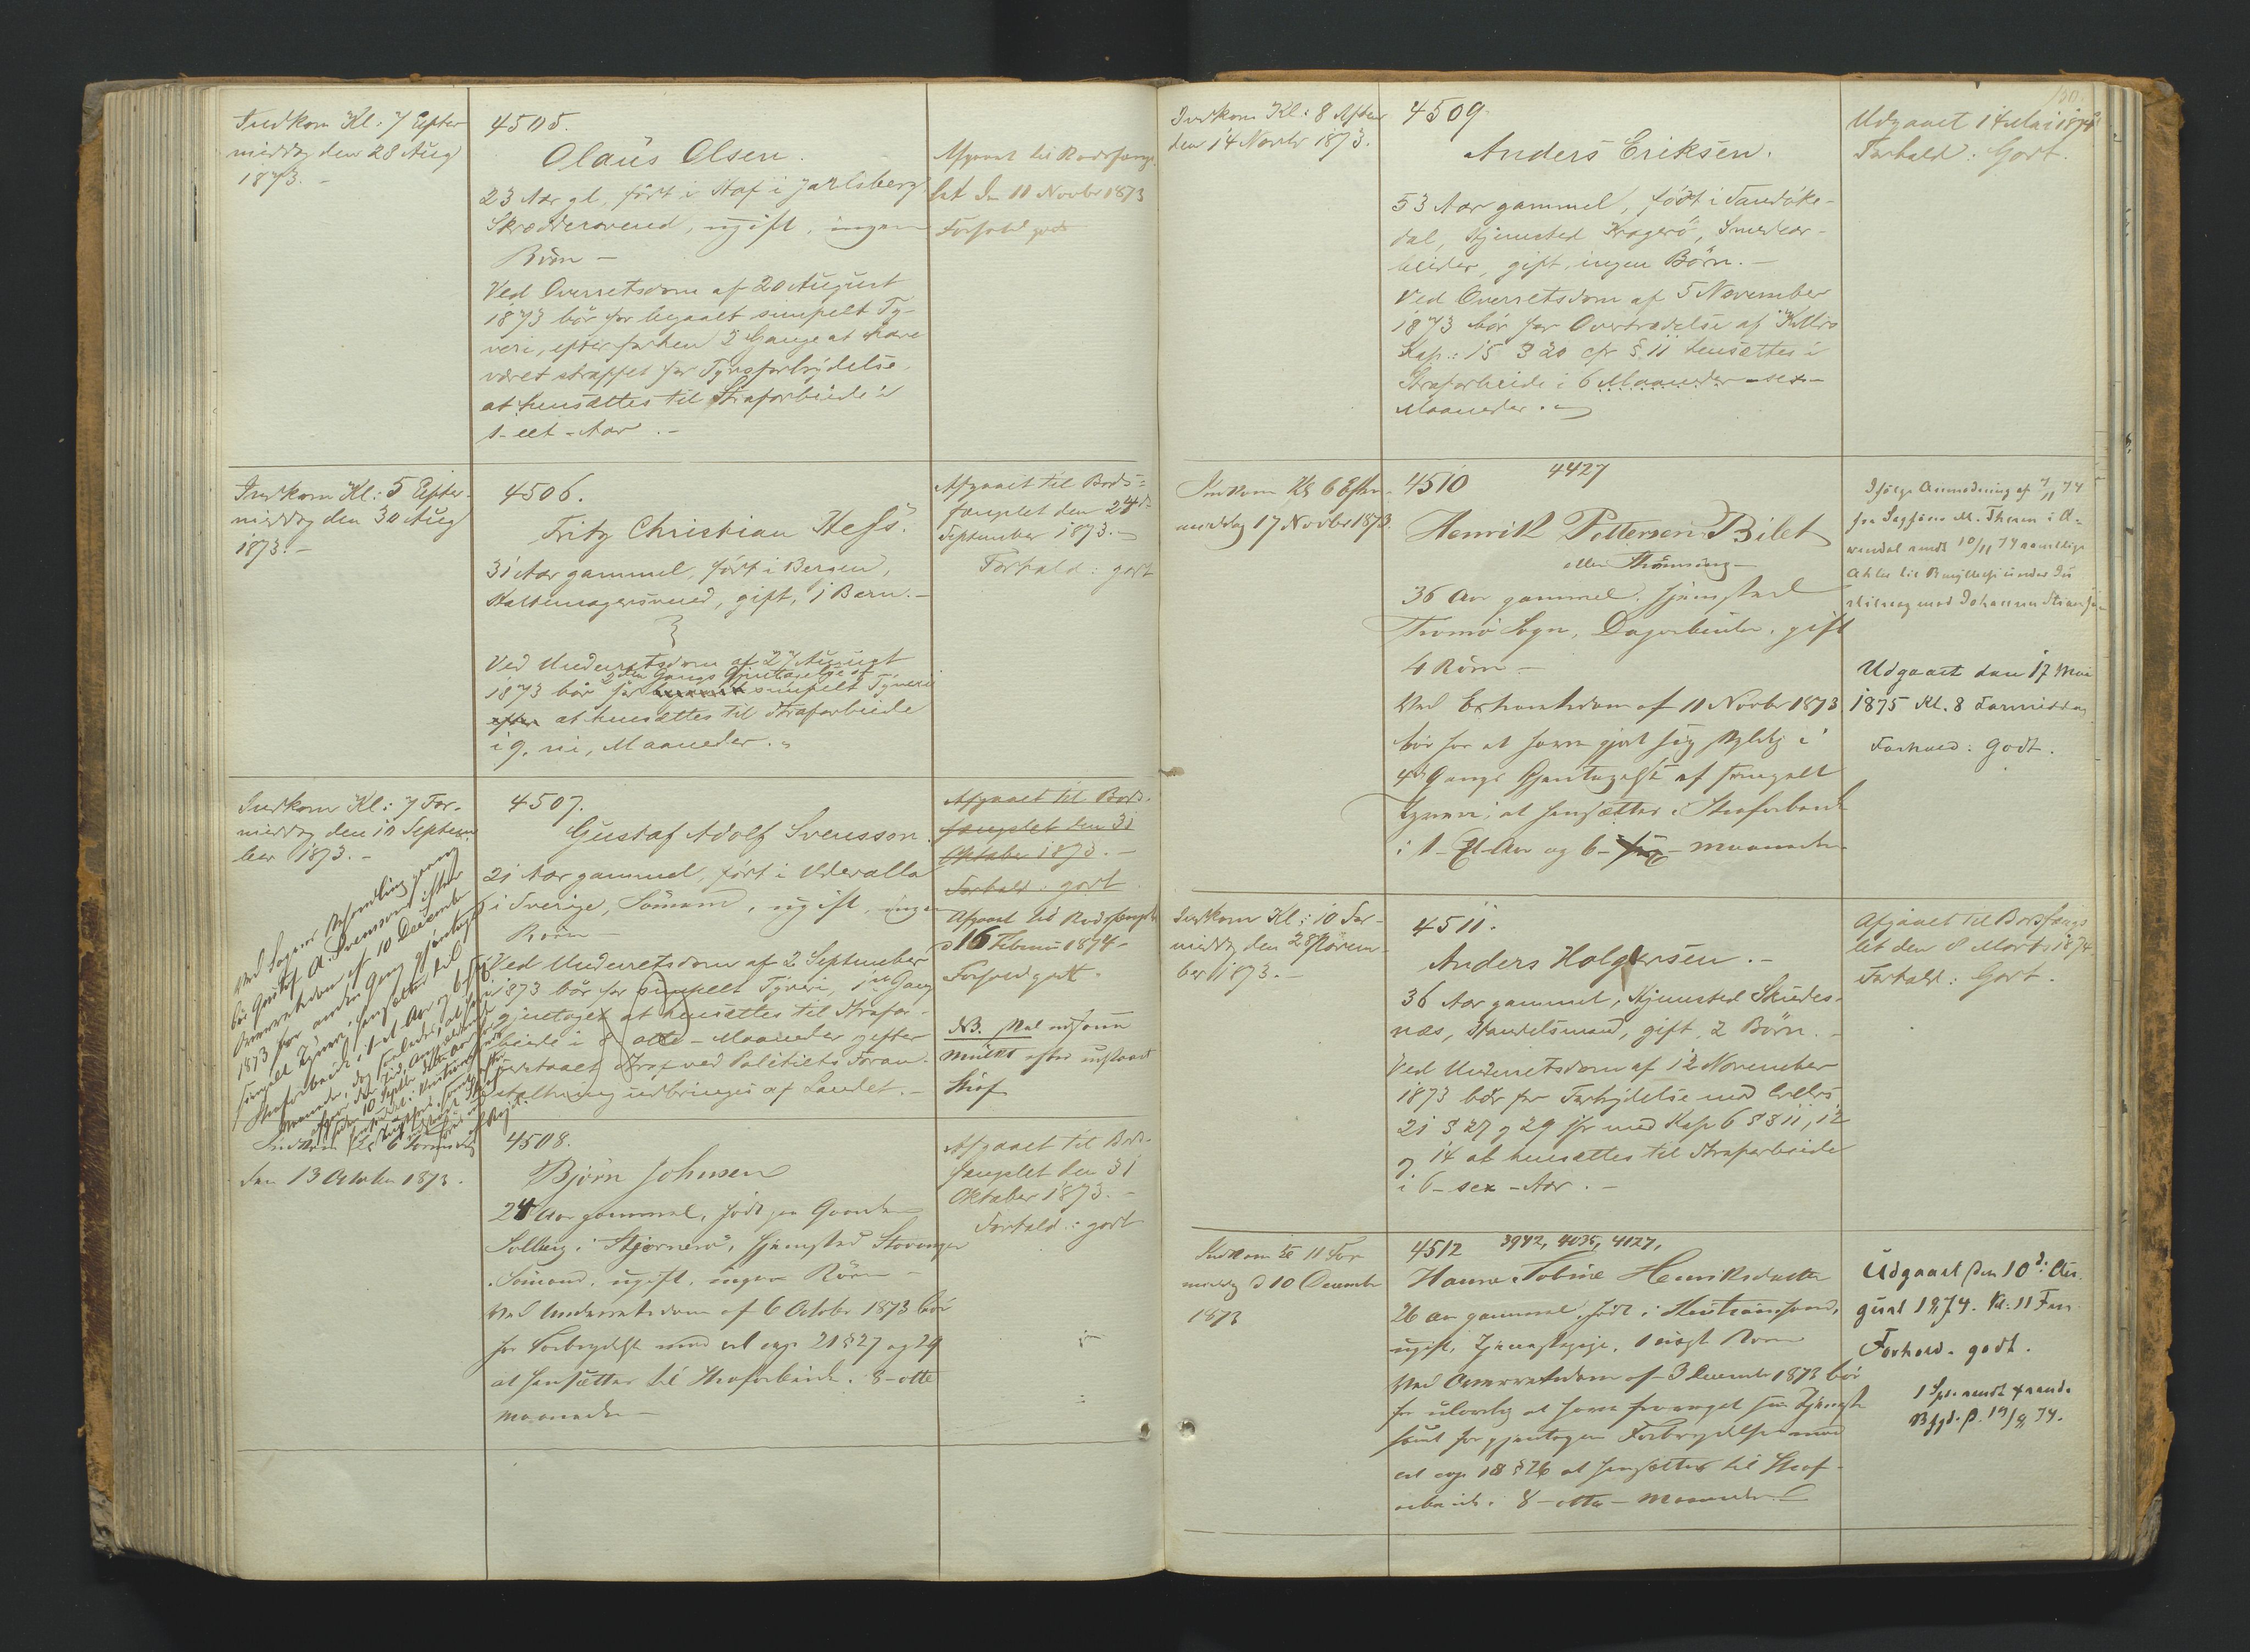 Indkom Kl: 7 Efter
middag den 28 Aug
1873. -
4505.
Olaus Olsen.
23 Aar gl, født i Hof i Jarlsberg
Skræddersvend, ugift, ingen
Børn -
Ved Overretsdom af 20 August
1873 bør for begaaet simpelt Ty-
veri, efter forhen 2 Gange at have
været straffet for Tyvsforbrydelse,
at hensættes til Strafarbeide i
1 - eet - Aar . -
Afgaaet til Bodsfæng-
let den 11 Novbr 1873
Forhold godt
Indkom Kl: 5 Efter-
middag den 30 Aug
1873. -
4506.
Fritz Christian Hess.
31 Aar gammel, født i Bergen,
gift, 1 Barn. -
Ved Underretsdom af 27 August
2den Gangs Gjentagelse af
1873 bør for simpelt Tyveri
efter at hensættes til Strafarbeide
i 9, ni, Maaneder.
Afgaaet til Bods-
fænglet den 24d
September 1873. -
Forhold: godt
Indkom Kl: 7 For-
middag den 10 Septem-
ber 1873. -
Ved Sagens Behandling paany
bør Gustaf A. Svensson efter
Overretsdom af 10 December
1873 for anden Gang gjentaget
simpelt Tyveri hensættes til
Strafarbeide i 1 et Aar og 6 sex
4507.
Gustaf Adolf Svensson.
21 Aar gammel, født i Udevalla
i Sverige, Sømand, ugift, ingen
Børn -
Ved Underretsdom af 2 September
1873 bør for simpelt Tyveri, 1ste Gang
gjentaget at hensættes til Strafar-
beide i 8 - otte - Maaneder og efter
udstaaet Straf ved Politiets Foran-
staltning udbringes af Landet. -
Afgaaet til Bods-
fænglet den 31
Oktober 1873. -
Forhold: godt.
Afgaaet til Bodsfænglet
d 16 Februar 1874 -
Forhold godt.
NB. Skal
efter udstaaet
Straf
Indkom Kl 6 Formiddag
den 13 October 1873.
4508.
Bjørn Johnsen
24 Aar gammel, født paa Gaarden
Solberg i Hjernerø, Hjemsted Stavanger
Sømand, ugift, ingen Børn -
Ved Underretsdom af 6 October 1873 bør
for Forbrydelse mod crl cap 21 § 27 og 29
at hensættes til Strafarbeide i 8 - otte
Maaneder -
Afgaaet til Bods-
fænglet den 31
Oktober 1873. -
Forhold: godt
Indkom Kl: 8 Aften
den 14 Novbr 1873.
4509.
Anders Eriksen.
53 Aar gammel, født i Sandøke-
dal, Hjemsted Kragerø, Smedear-
beider, gift, ingen Børn. -
Ved Overretsdom af 5 November
1873 bør for Overtrædelse af Krlvs
Kap.: 15 § 20 cfr § 11 hensættes i
Strafarbeide i 6 Maaneder - sex -
Maaneder. -
Udgaaet 14 Mai 1874
Forhold: Godt.
Indkom Kl 6 Efter-
middag 17 Novbr 1873.
4510 4427
Henrik Pettersen Bilet
eller
36 Aar gammel, Hjemsted
Tromø Sogn, Dagarbeider, gift
4 Børn -
Ved Extraretsdom af 11 Novbr 1873
bør for at have gjort sig skyldig i
4de Gangs Gjentagelse af simpelt
Tyveri, at hensættes i Strafarbeide
i 1 - Et - Aar og 6 - sex - Maaneder
Ifølge Anmodning af 7/11 74
fra Sagfører M. Thorsen i A-
rendal sendt 10/11 74
Udgaaet den 17 Mai
1875 Kl. 8 Formiddag
Forhold: Godt.
Indkom Kl: 10 For-
middag den 28 Novem-
ber 1873. -
4511.
Anders Holgersen. -
36 Aar gammel, Hjemsted Skudes-
næs, Handelsmand, gift, 2 Børn. -
Ved Underretsdom af 12 November
1873 bør for Forbrydelse mod Crlvs
21 § 27 og 29 jfr med Kap 6 §§ 11, 12
og 14 at hensættes til Strafarbeide
i 6 - sex - Aar. -
Afgaaet til Bodsfæng-
let den 8 Marts 1874.
Forhold: Godt.
Indkom Kl 11 For
middag d 10 December
1873
4512 3942, 4035, 4127,
Hanne Tobine Henriksdatter
26 Aar gammel, født i Kristiansand,
ugift, Tjenestepige, 1 uægt Barn
Ved Overretsdom af 3 December 1873 bør
for ulovlig at have fraveget sin Tjeneste
samt for gjentagen Forbrydelse mod
crl cap 18 § 26 at hensættes til Straf-
arbeide i 8 - otte - Maaneder
Udgaaet den 10d Au-
gust 1874. Kl: 11 Form
Forhold. godt.